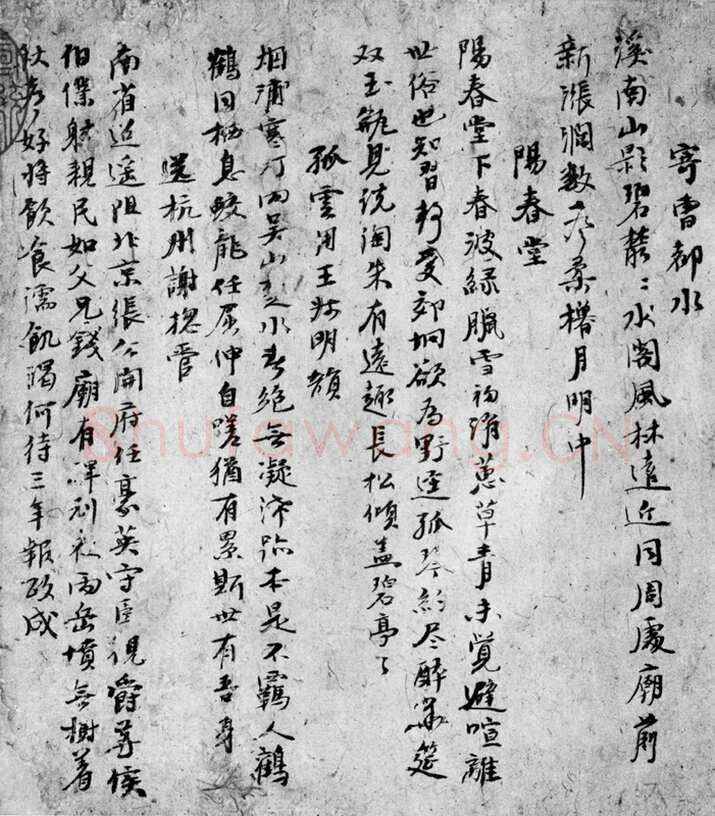 寄曹都水
溪南山影碧叢〻水閣風林遠近同周處廟前
新漲闊數聲柔櫓月明中
陽春堂
陽春堂下春波緑臘雪初消蕙草青未覺避喧離
世俗也知習静愛郊坰欲爲野逕孤琴約盡醉華筵
双玉瓶見説陶朱有遠趣長松傾盖碧亭〻
孤雲用王叔明韻
烟浦寒汀雨吴山楚水春絶無凝滞跡本是不羈人鸛
鶴同栖息蛟龍任屈伸自嗟猶有累斯世有吾身
送杭州謝揔管
南省迢遥阻北京張公開府任豪英守臣視爵等侯
伯僕射親民如父兄錢廟有碑刻衣雨岳墳無樹着
秋聲好将飲食濡飢渴何待三年報政成
Shufawang.CN